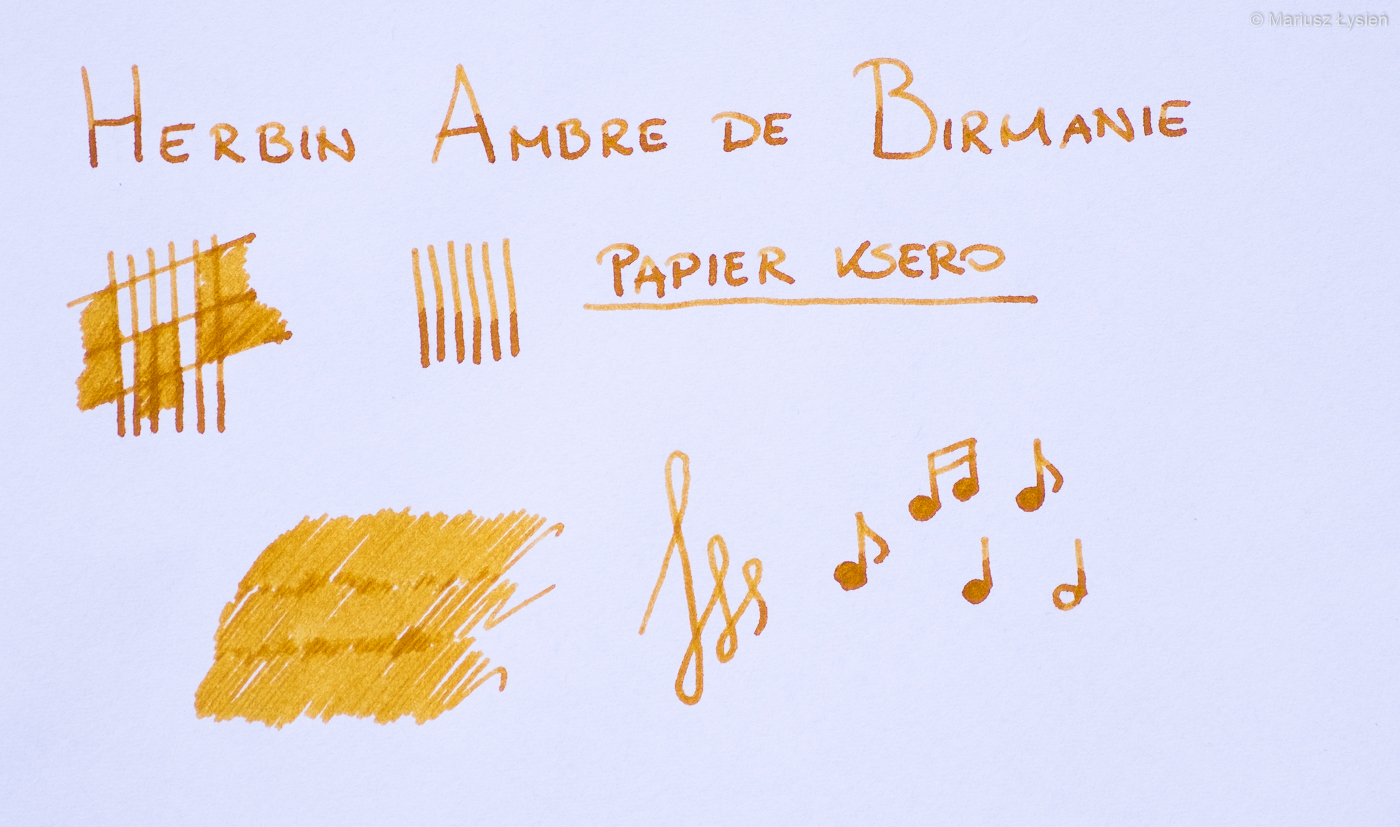 © Mariusz Łysień
HERBIN AMBRE DE BIRMANIE
PAPIER KSERO